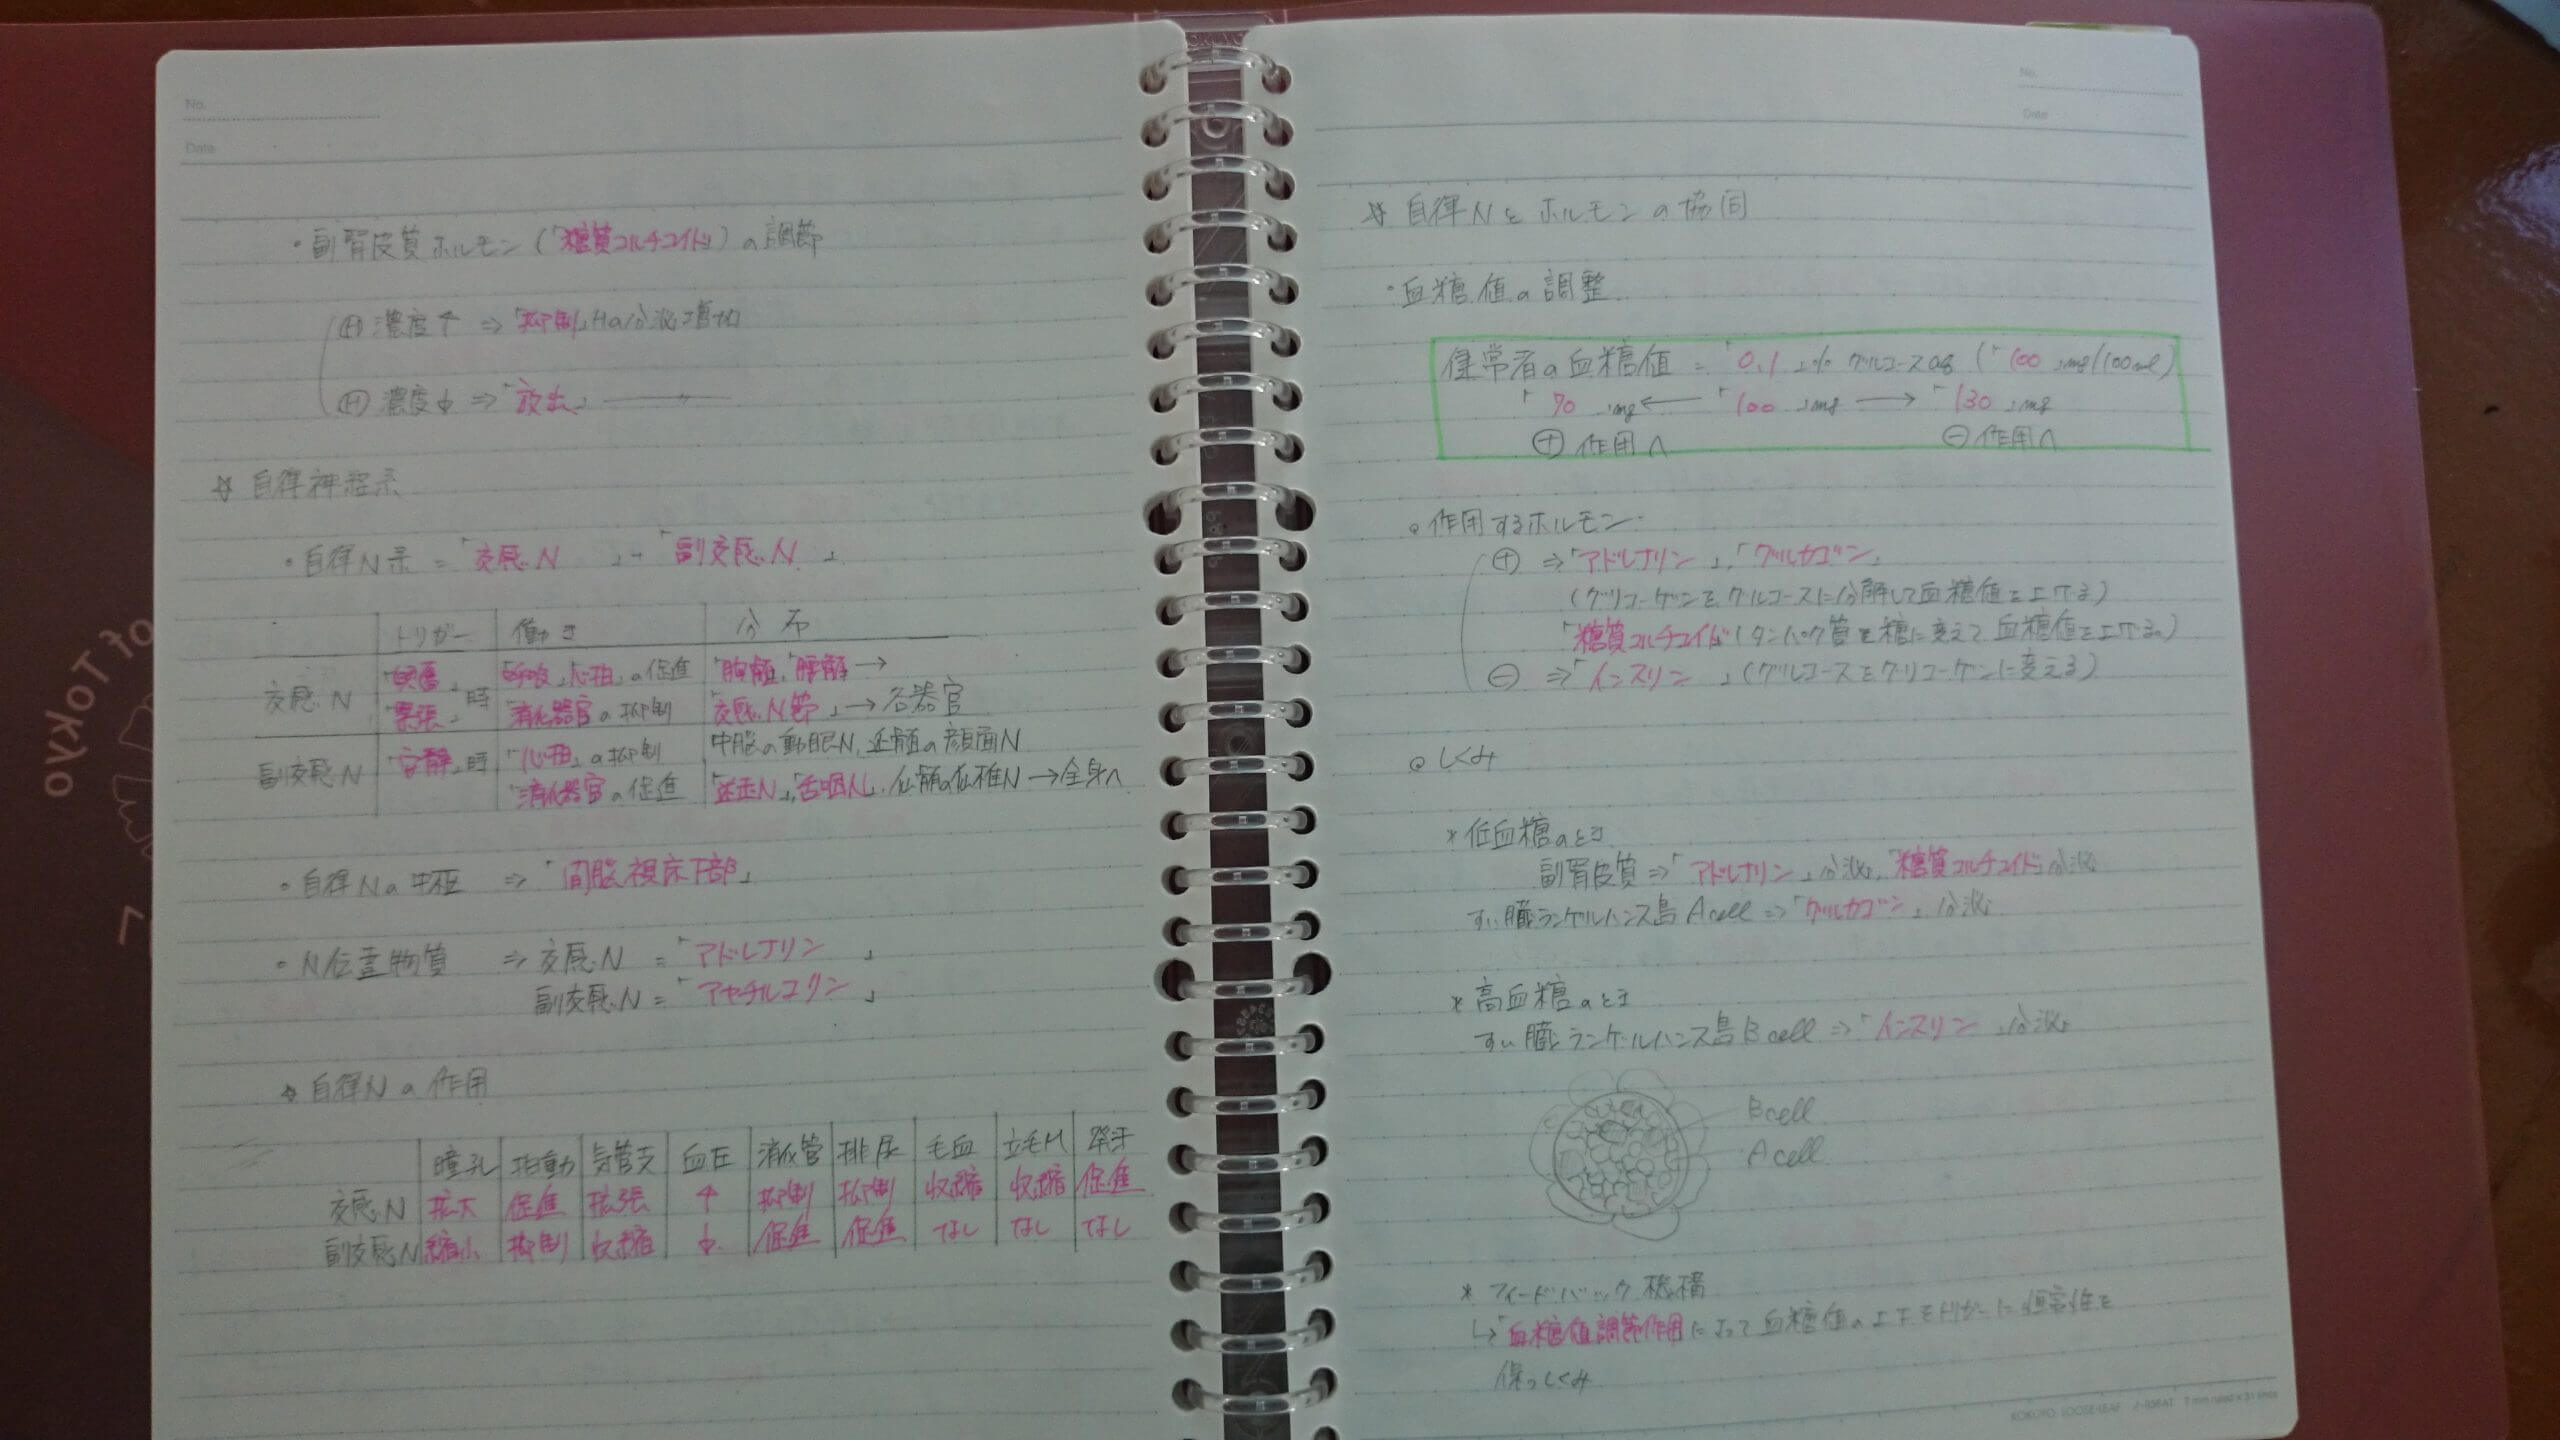 No.
Date
・副腎皮質ホルモン(「糖質コルチコイド」)の調節
Ⓗ濃度↑⇒「抑制」Hの分泌増加
Ⓗ濃度↓⇒「放出」 〃
☆自律神経系
・自律N系=「交感N」+「副交感N」
トリガー 働き 分布
交感N 「興奮」「緊張」時 「呼吸」「心拍」の促進 「胸髄」「腰髄」→
「消化器官」の抑制 「交感N節」→各器官
副交感N 「安静」時 「心拍」の抑制 中脳の動眼N、延髄の顔面N
「消化器官」の促進 「迷走N」「舌咽N」、仙髄の仙椎N→全身へ
・自律Nの中枢 ⇒「間脳視床下部」
・N伝達物質 ⇒交感N=「アドレナリン」
副交感N=「アセチルコリン」
☆自律Nの作用
瞳孔 拍動 気管支 血圧 消化管 排尿 毛血 立毛M 発汗
交感N 拡大 促進 拡張 ↑ 抑制 抑制 収縮 収縮 促進
副交感N 縮小 抑制 収縮 ↓ 促進 促進 なし なし なし
No.
Date
☆自律Nとホルモンの協同
・血糖値の調整
健常者の血糖値=「0.1」% グルコース(「100」mg/100ml)
「70」mg←「100」mg→「130」mg
⊕作用へ ⊖作用へ
◦作用するホルモン
⊕⇒「アドレナリン」,「グルカゴン」
(グリコーゲンをグルコースに分解して血糖値を上げる)
「糖質コルチコイド」(タンパク質を糖に変えて血糖値を上げる。)
⊖⇒「インスリン」(グルコースをグリコーゲンに変える)
◦しくみ
*低血糖のとき
副腎皮質⇒「アドレナリン」分泌,「糖質コルチコイド」分泌
すい臓ランゲルハンス島A cell⇒「グルカゴン」分泌
*高血糖のとき
すい臓ランゲルハンス島B cell⇒「インスリン」分泌
B cell
A cell
*フィードバック機構
↳「血糖値調節作用」によって血糖値の上下をトリガーに恒常性を
保つしくみ
KOKUYO LOOSE-LEAF 7 mm ruled × 31 lines
OF TOKYO